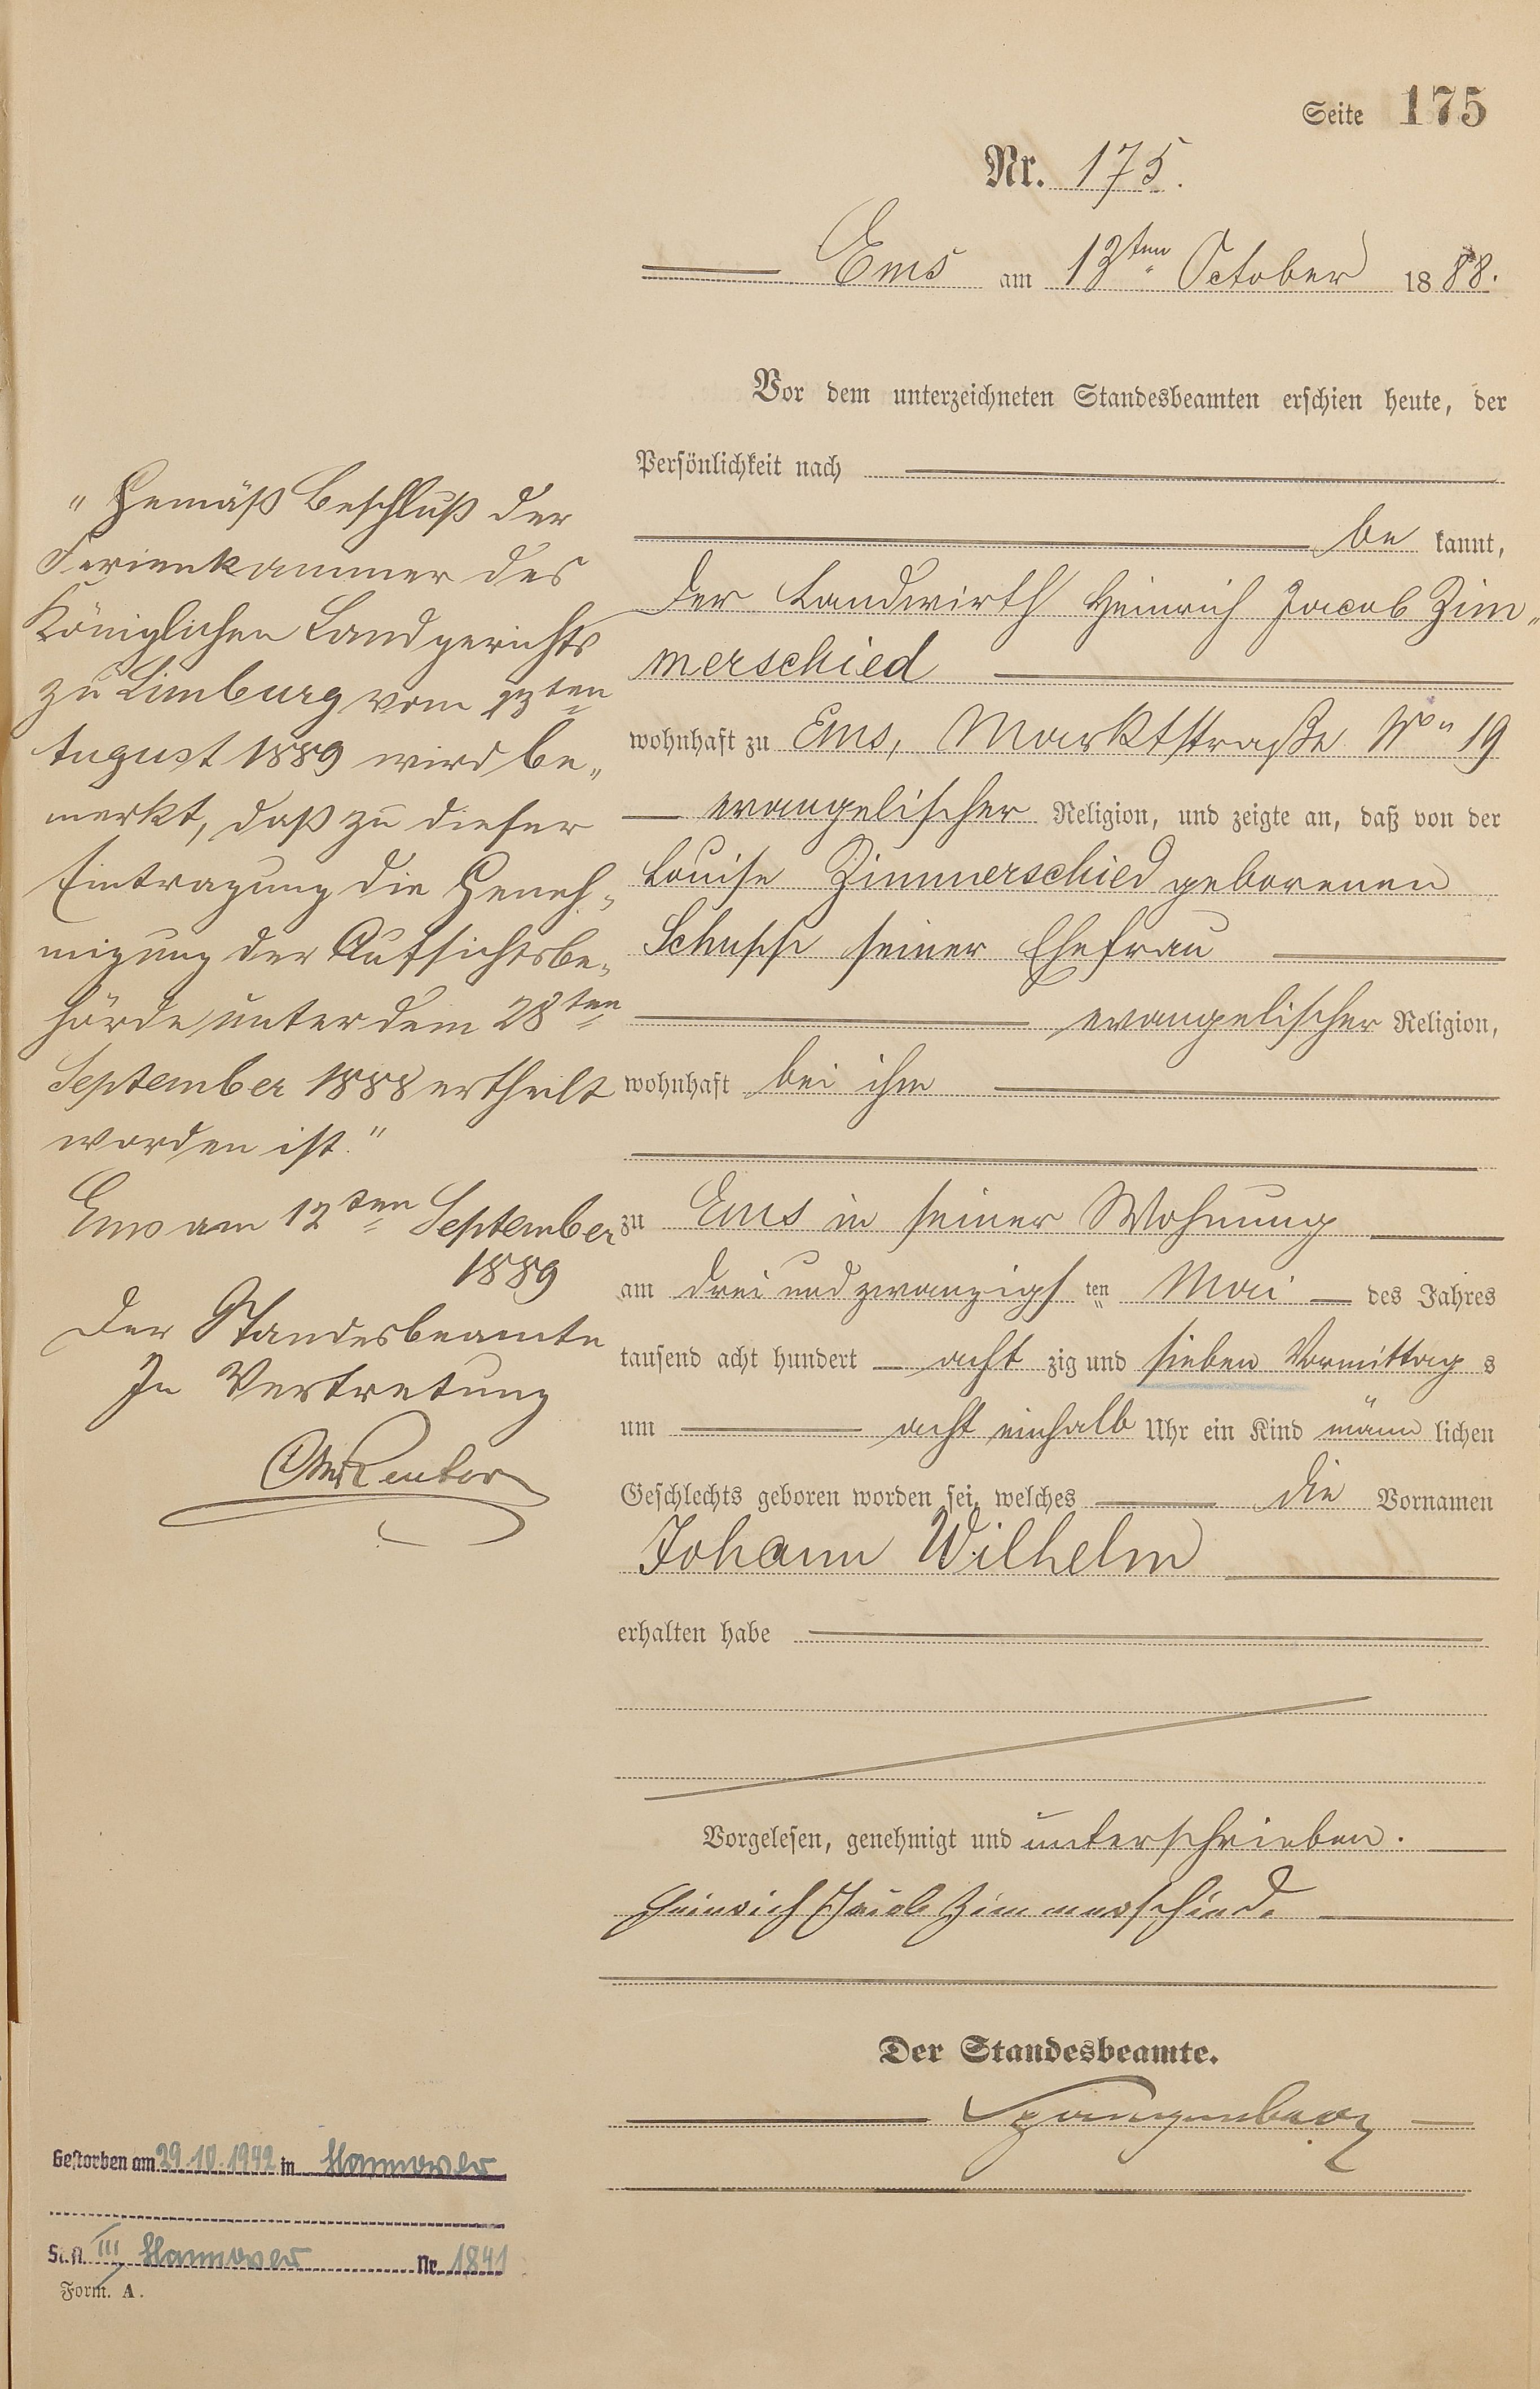 Seite 175
Nr. 175.
Ems am 13ten October 1888.
Vor dem unterzeichneten Standesbeamten erschien heute, der
Persönlichkeit nach
be kannt,
der Landwirth Heinrich Jacob Zim„
merschied
wohnhaft zu Ems, Marktstraße No 19
evangelischer Religion, und zeigte an, daß von der
Louise Zimmerschied geborenen
Schupp seiner Ehefrau
evangelischer Religion,
wohnhaft bei ihm
zu Ems in seiner Wohnung
am drei und zwanzigs ten Mai des Jahres
tausend acht hundert acht zig und sieben Vormittag s
um acht einhalb Uhr ein Kind männ lichen
Geschlechts geboren worden sei, welches die Vornamen
Johann Wilhelm
erhalten habe
Vorgelesen, genehmigt und unterschrieben.
Heinrich Jacob Zimmerschied.
Der Standesbeamte.
Spangenberg
„Gemäß Beschluß der
Ferienkammer des
Königlichen Landgerichts
zu Limburg vom
August 1889 wird be„
merkt, daß zu dieser
Eintragung die Geneh„
migung der Aufsichtsbe„
hörde unter dem 28ten
September 1888 ertheilt
worden ist."
Ems am 12ten September
1889
Der Standesbeamte
In Vertretung
Gestorben am 29.10.1942 in Hannover
St.A. III Hannover Nr. 1841
Form. A.